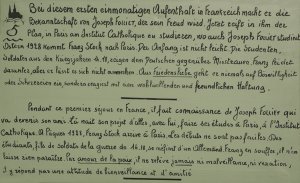 Bei diesem ersten einmonatigen Aufenthalt in Frankreich macht er die
Bekanntschaft von Joseph Folliet, der sein Freund wird. Jetzt reift in ihm der
Plan, in Paris am Institut Catholique zu studieren, wo auch Joseph Folliet studiert
Ostern 1928 kommt Franz Stock nach Paris. Der Anfang ist nicht leicht. Die Studenten,
Soldaten aus den Kriegsjahren 14-18, zeigen dem Deutschen gegenüber Misstrauen. Franz
darunter, aber er lässt es sich nicht anmerken. Aus Friedensliebe geht er niemals auf Böswilligkeit
oder Schroffheit ein, sondern reagiert mit einer wohlwollenden und freundlichen Haltung.
Pendant ce premier séjour en France, il fait connaissance de Joseph Folliet qui
va devenir son ami. Là naît son projet d'aller, avec lui, faire ses études à Paris, à l'Institut
Catholique. A Pâques 1928, Franz Stock arrive à Paris. Les débuts ne sont pas faciles. Des
étudiants, fils de soldats de la guerre de 14-18, se méfient d'un Allemand. Franz en souffre, il n'en
laisse rien paraître. Par amour de la paix, il ne relève jamais ni malveillance, ni réaction,
il y répond par une attitude de bienveillance et d'amitié